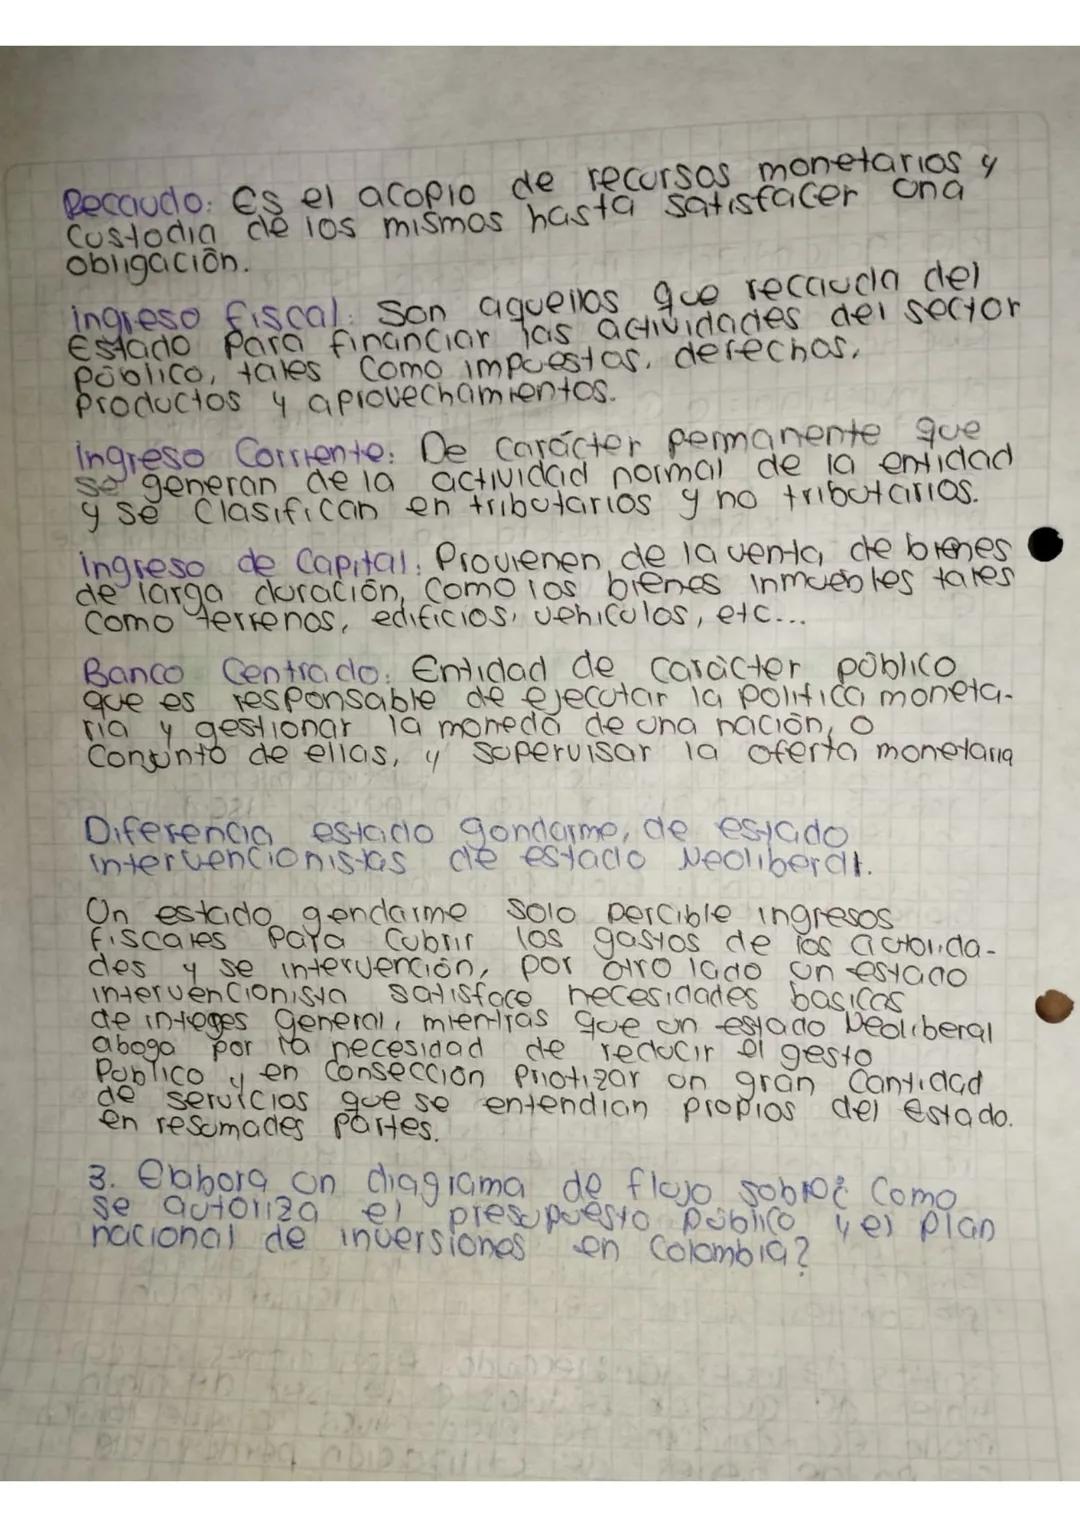 Recaudo: Es el acopio de recursos monetarios y
custodia de los mismos hasta satisfacer una
obligación.
ingreso fiscal: Son aquellos que recauda del
Estado para financiar las actividades del sector
público, tales como impuestos, derechos,
productos y aprovechamientos.
ingreso Corriente: De carácter permanente que
se generan de la actividad normal de la entidad
y se clasifican en tributarios y no tributarios.
ingreso de Capital: Provienen de la venta de bienes
de larga duración, como los bienes inmuebles tales
como terrenos, edificios, vehiculos, etc...
Banco Centrado: Entidad de carácter público
que es responsable de ejecutar la politica moneta-
ria y gestionar la moneda de una nación, o
conjunto de ellas, y supervisar la oferta monetaria
Diferencia estado gondarme, de estado
intervencionistas de estado Neoliberal.
Un estado gendarme solo percible ingresos
fiscales para cubrir los gastos de las autorida-
des y se intervención, por otro lado un estado
intervencionista satisface necesidades basicas
de integes general, mientras que un estado Neoliberal
aboga por la necesidad de reducir el gesto
Publico y en consección priotizar un gran cantidad
de servicios que se entendian propios del Estado.
en resumades partes.
3. Elabora un diagrama de flujo sobre¿ Como
se autoriza el presupuesto público y el plan
nacional de inversiones en Colombia?